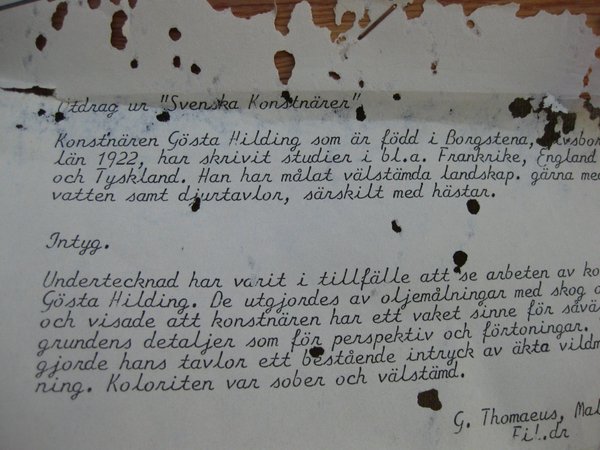 Utdrag ur "Svenska Konstnärer"
Konstnären Gösta Hilding som är född i Borgstena,
län 1922, har skrivit studier i bl.a. Frankrike, England
och Tyskland. Han har målat välstämda landskap. gärna med
vatten samt djurtavlor, särskilt med hästar.
Intyg.
Undertecknad har varit i tillfälle att se arbeten av
Gösta Hilding. De utgjordes av oljemålningar med skog
och visade att konstnären har ett vaket sinne för
grundens detaljer som för perspektiv och förtoningar.
gjorde hans tavlor ett bestående intryck av äkta
ning. Koloriten var sober och välstämd.
G. Thomaeus,
Fil.dr